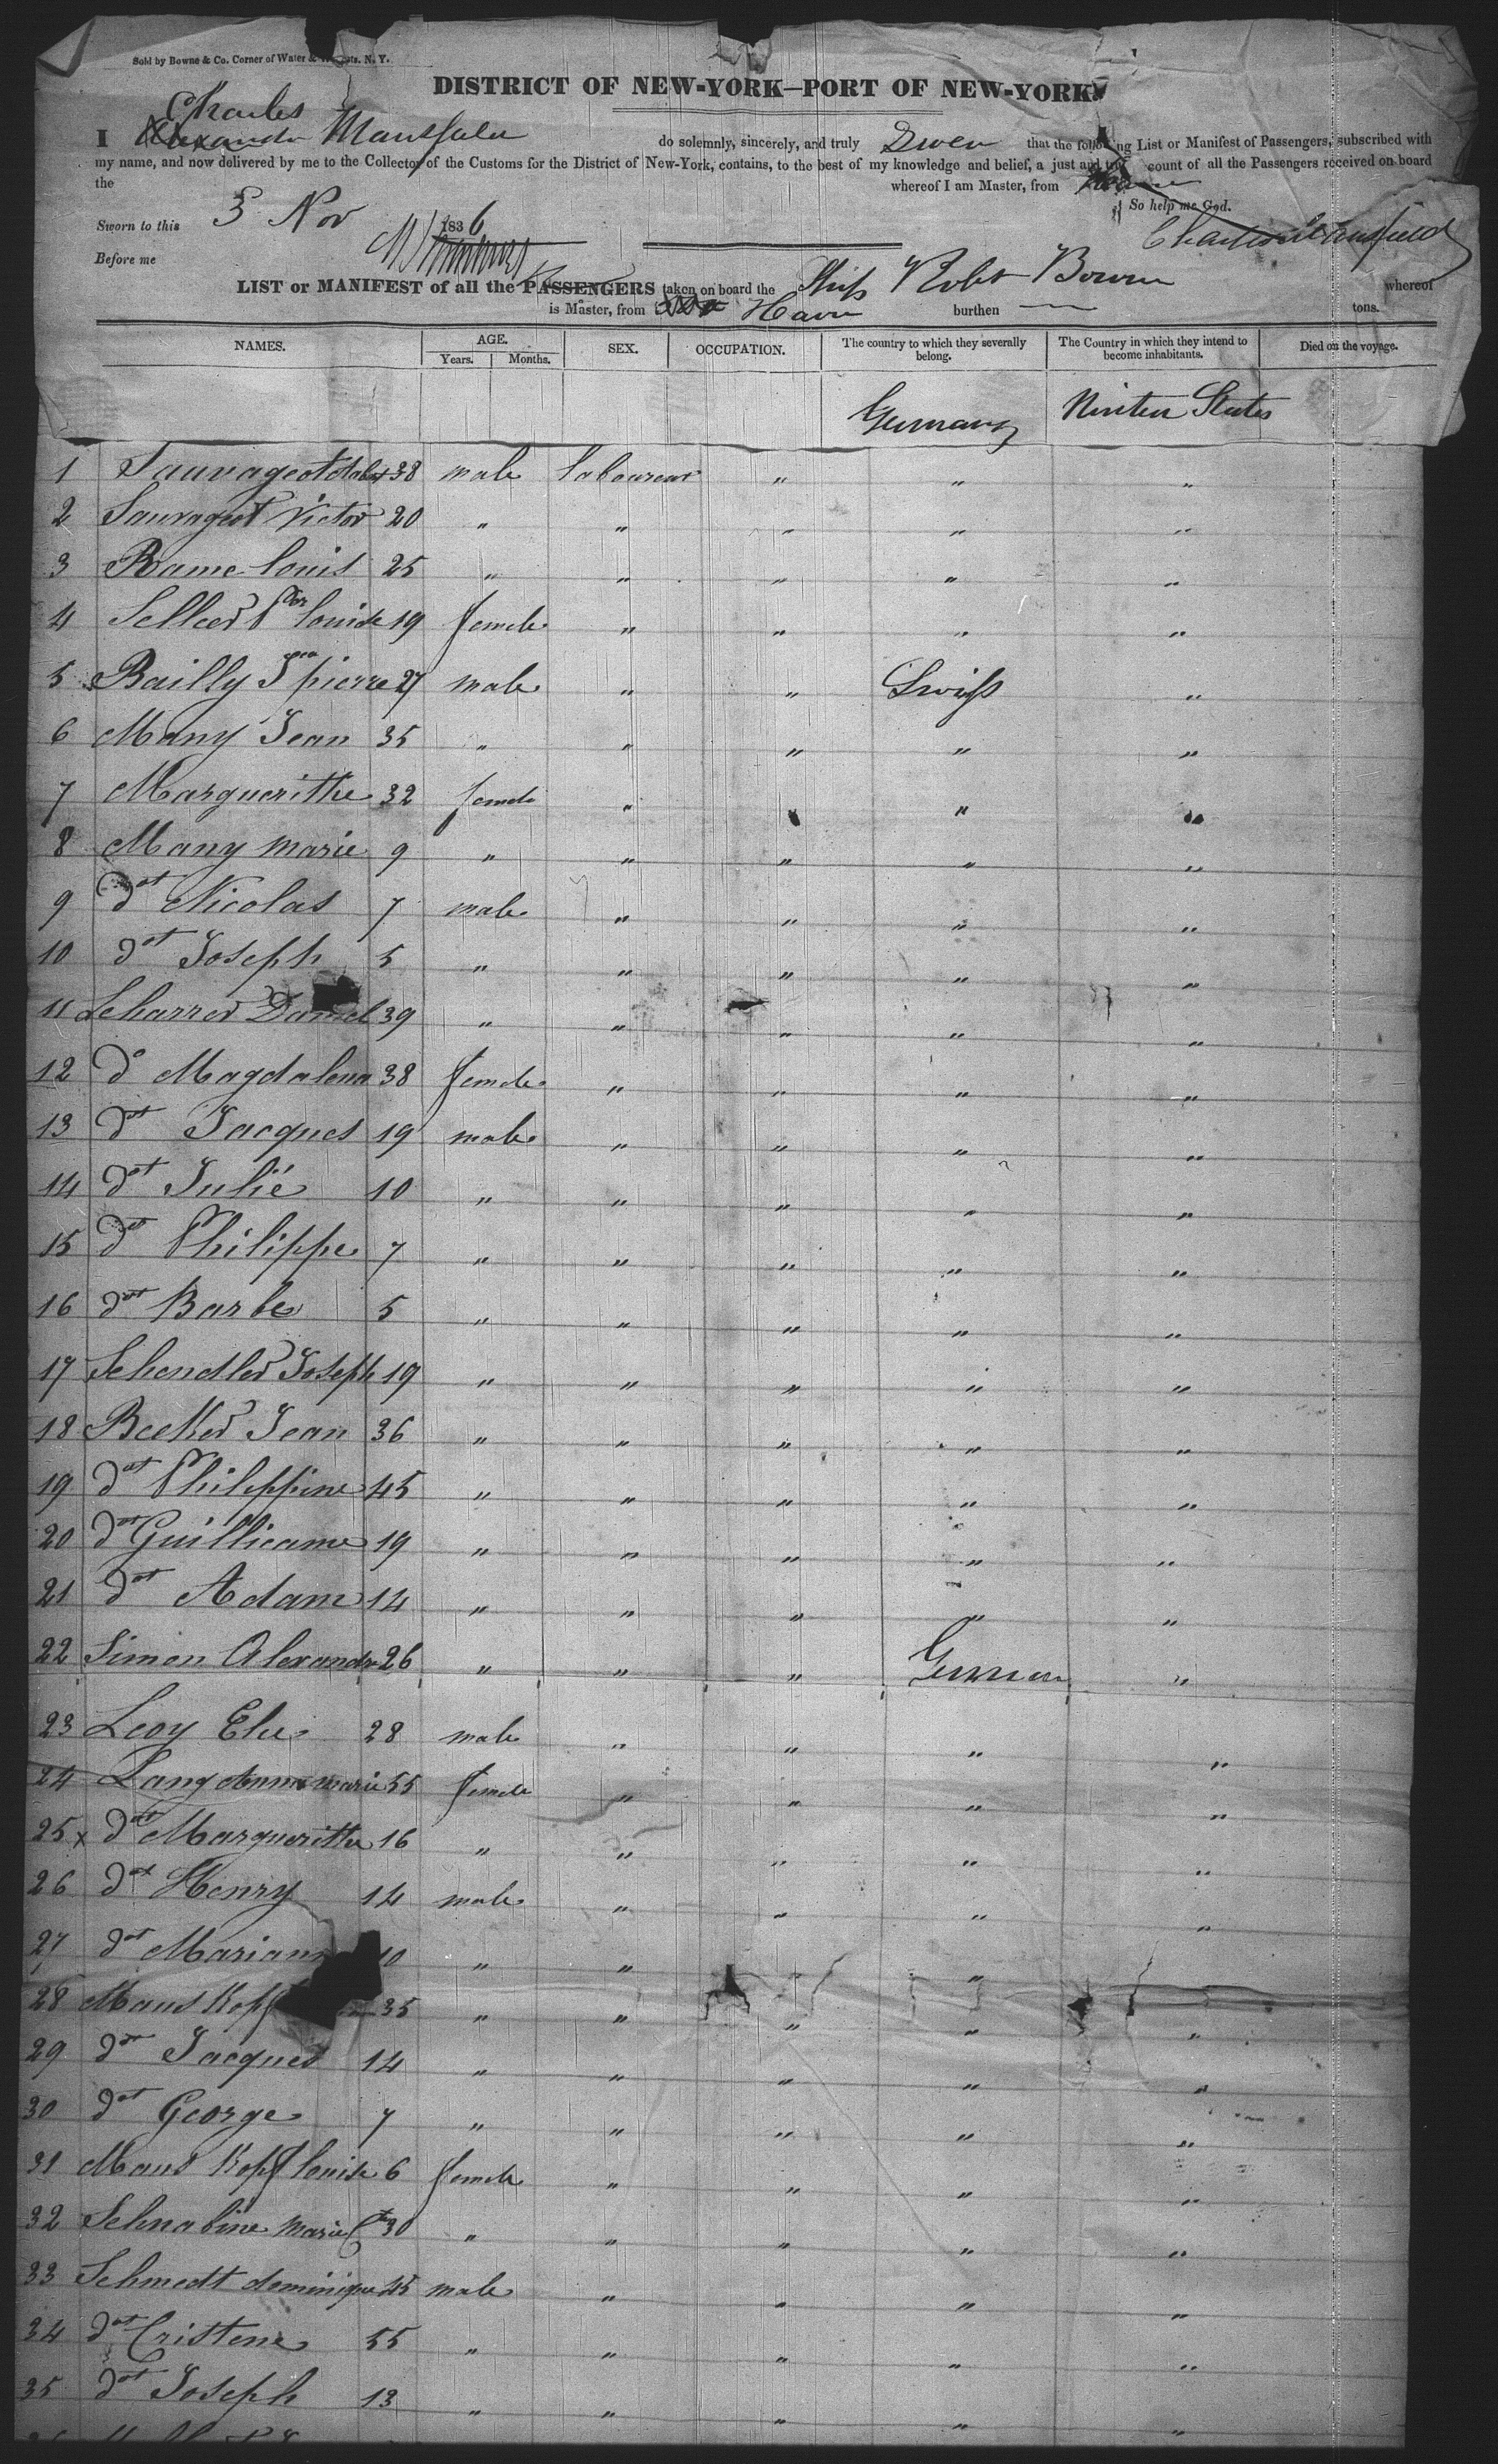 Sold by Bowne & Co. Corner of Water & sts. N. Y.
DISTRICT OF NEW-YORK—PORT OF NEW-YORK.
Charles
I Alexander Mansfield do solemnly, sincerely, and truly Swear that the following List or Manifest of Passengers, subscribed with
my name, and now delivered by me to the Collector of the Customs for the District of New-York, contains, to the best of my knowledge and belief, a just and true count of all the Passengers received on board
the whereof I am Master, from Havre
So help me God.
Sworn to this 3 Nov 1836
Charles Mansfield
Before me
LIST or MANIFEST of all the PASSENGERS taken on board the Ship Robt Bowne whereof
is Master, from Havre burthen — tons.
NAMES. AGE. SEX. OCCUPATION. The country to which they severally belong. The Country in which they intend to become inhabitants. Died on the voyage.
Years. Months.
Germany United States
1 Sauvageot 38 male laboureur " " "
2 Sauvageot Victor 20 " " " " "
3 Rame louis 25 " " " " "
4 louise 19 female " " " "
5 Bailly Jean pierre 27 male " " Swiss "
6 Many Jean 35 " " " " "
7 Marguerithe 32 female " " " "
8 Many marie 9 " " " " "
9 dot Nicolas 7 male " " " "
10 dot Joseph 5 " " " " "
11 Scharrer Daniel 39 " " " " "
12 do Magdalena 38 female " " " "
13 dot Jacques 19 male " " " "
14 dot Julie 10 " " " " "
15 dot Philippe 7 " " " " "
16 dot Barbe 5 " " " " "
17 Schendler Joseph 19 " " " " "
18 Becker Jean 36 " " " " "
19 dot Philippine 45 " " " " "
20 dot Guillieaume 19 " " " " "
21 dot Adam 14 " " " " "
22 Simon Alexandre 26 " " " German "
23 Leoy Elie 28 male " " " "
24 Lang Anna marie 55 female " " " "
25 x dot Margueritte 16 " " " " "
26 dot Henry 14 male " " " "
27 dot Mariann 10 " " " " "
28 Maus Kopf 35 " " " " "
29 dot Jacques 14 " " " " "
30 dot George 7 " " " " "
31 Maus Kopf louise 6 female " " " "
32 Schnabine Marie 30 " " " " "
33 Schmedt dominique 45 male " " " "
34 dot Cristene 55 " " " " "
35 dot Joseph 13 " " " " "